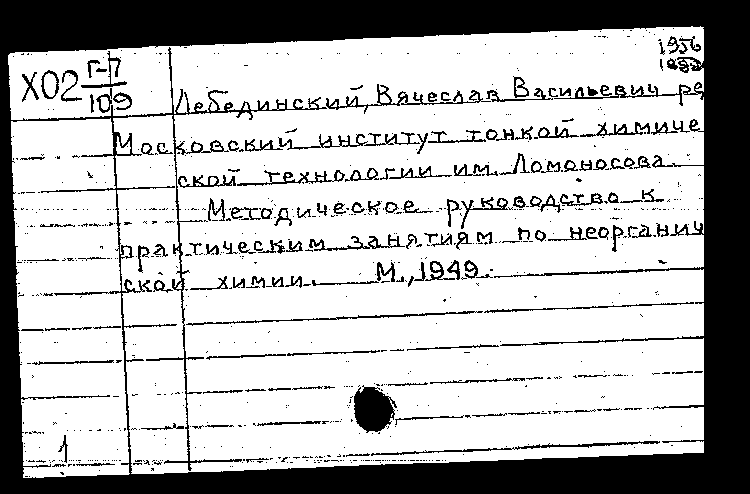 1956
Х02 Г-7
109
Лебединский, Вячеслав Васильевич ре
Московский институт тонкой химиче
ской технологии им. Ломоносова.
Методическое руководство к
практическим занятиям по неорганич
ской химии. М., 1949.
1